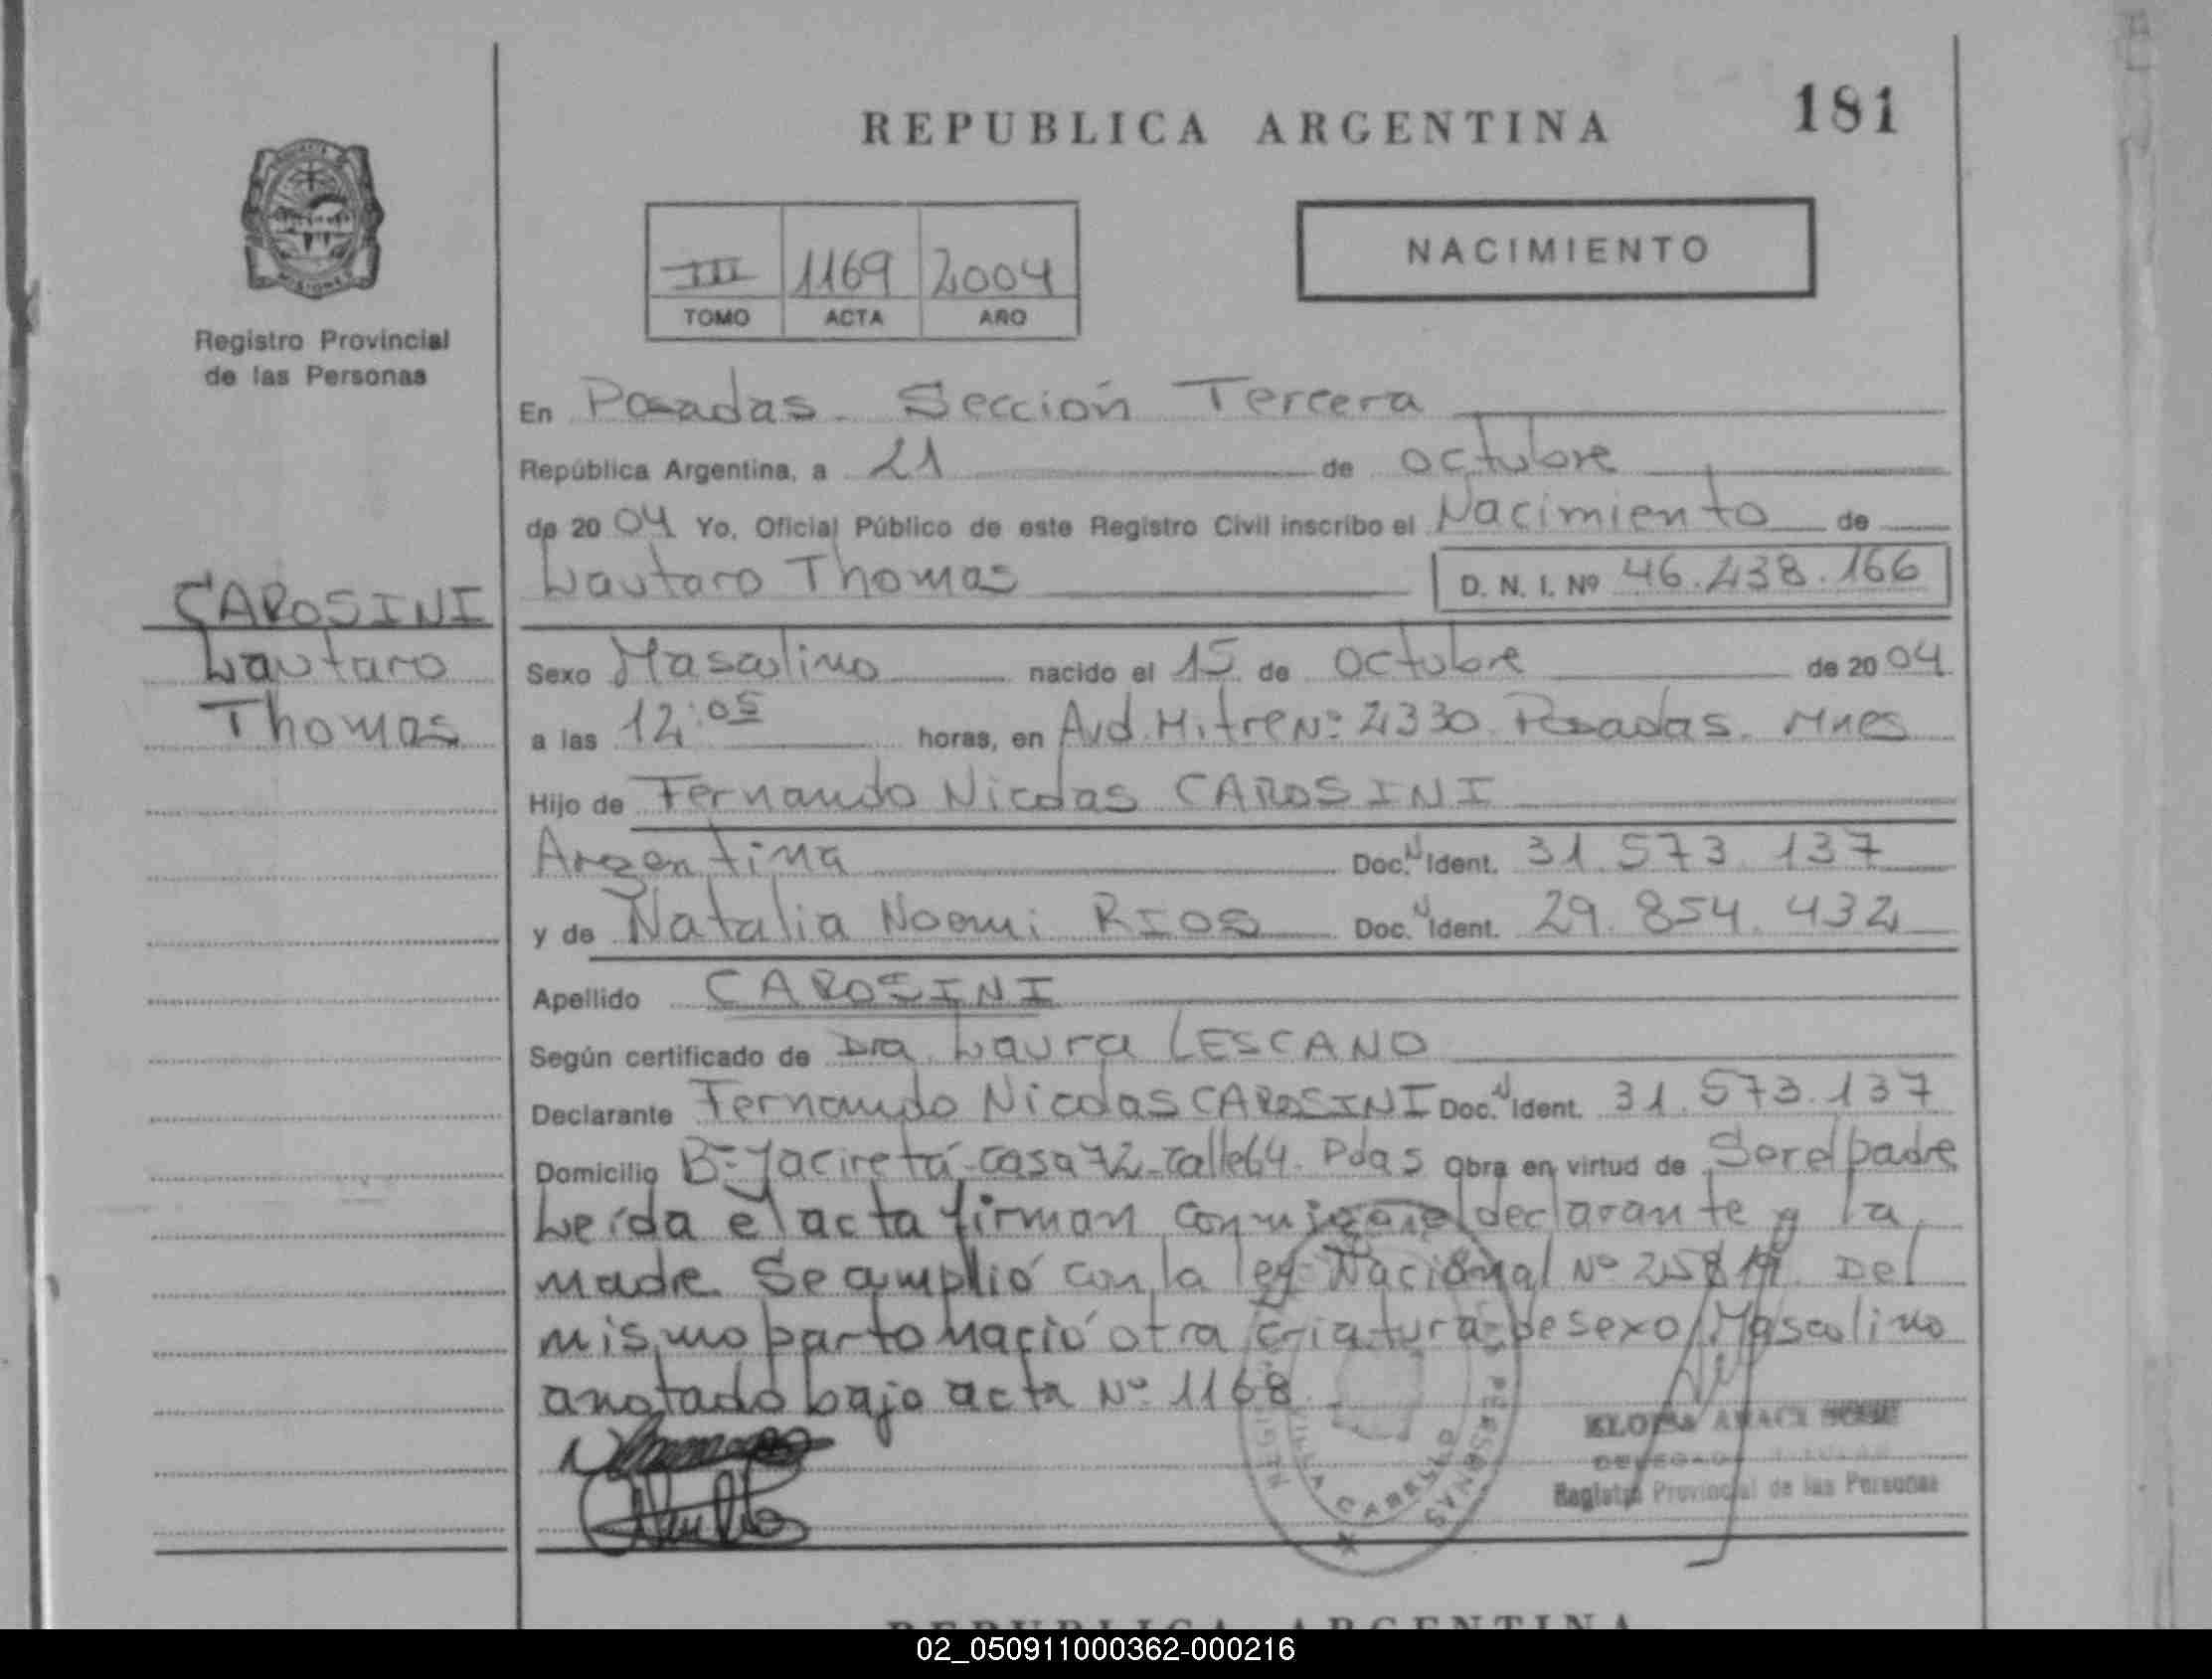 REPUBLICA ARGENTINA
181
NACIMIENTO
III 1169 2004
TOMO ACTA AÑO
Registro Provincial
de las Personas
MISIONES
En Posadas. Sección Tercera
República Argentina, a 21 de octubre
de 2004 Yo, Oficial Público de este Registro Civil inscribo el Nacimiento de
Lautaro Thomas D. N. I. Nº 46.238.166
CAROSINI
Lautaro
Thomas
Sexo Masculino nacido el 15 de octubre de 2004
a las 12:05 horas, en Avd. Mitre Nº 2330 Posadas. Mnes
Hijo de Fernando Nicolas CAROSINI
Argentina Doc. N Ident. 31.573.137
y de Natalia Noemi RIOS Doc. N Ident. 29.854.432
Apellido CAROSINI
Según certificado de Dra Laura LESCANO
Declarante Fernando Nicolas CAROSINI Doc. N Ident. 31.573.137
Domicilio Bº Yaciretá-casa 72-calle 64. Pdas Obra en virtud de Ser el padre
Leída el acta firman conmigo el declarante y la
madre. Se amplió con la ley Nacional Nº 25819. Del
mismo parto nació otra criatura de sexo Masculino
anotado bajo acta Nº 1168.
VILLA CABELLO
PERSONAS
Registro Provincial de las Personas
REPUBLICA ARGENTINA
02_050911000362-000216